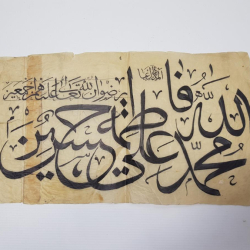 رضوان الله تعالى عليهم اجمعين
الله محمد علي فاطمة حسن حسين